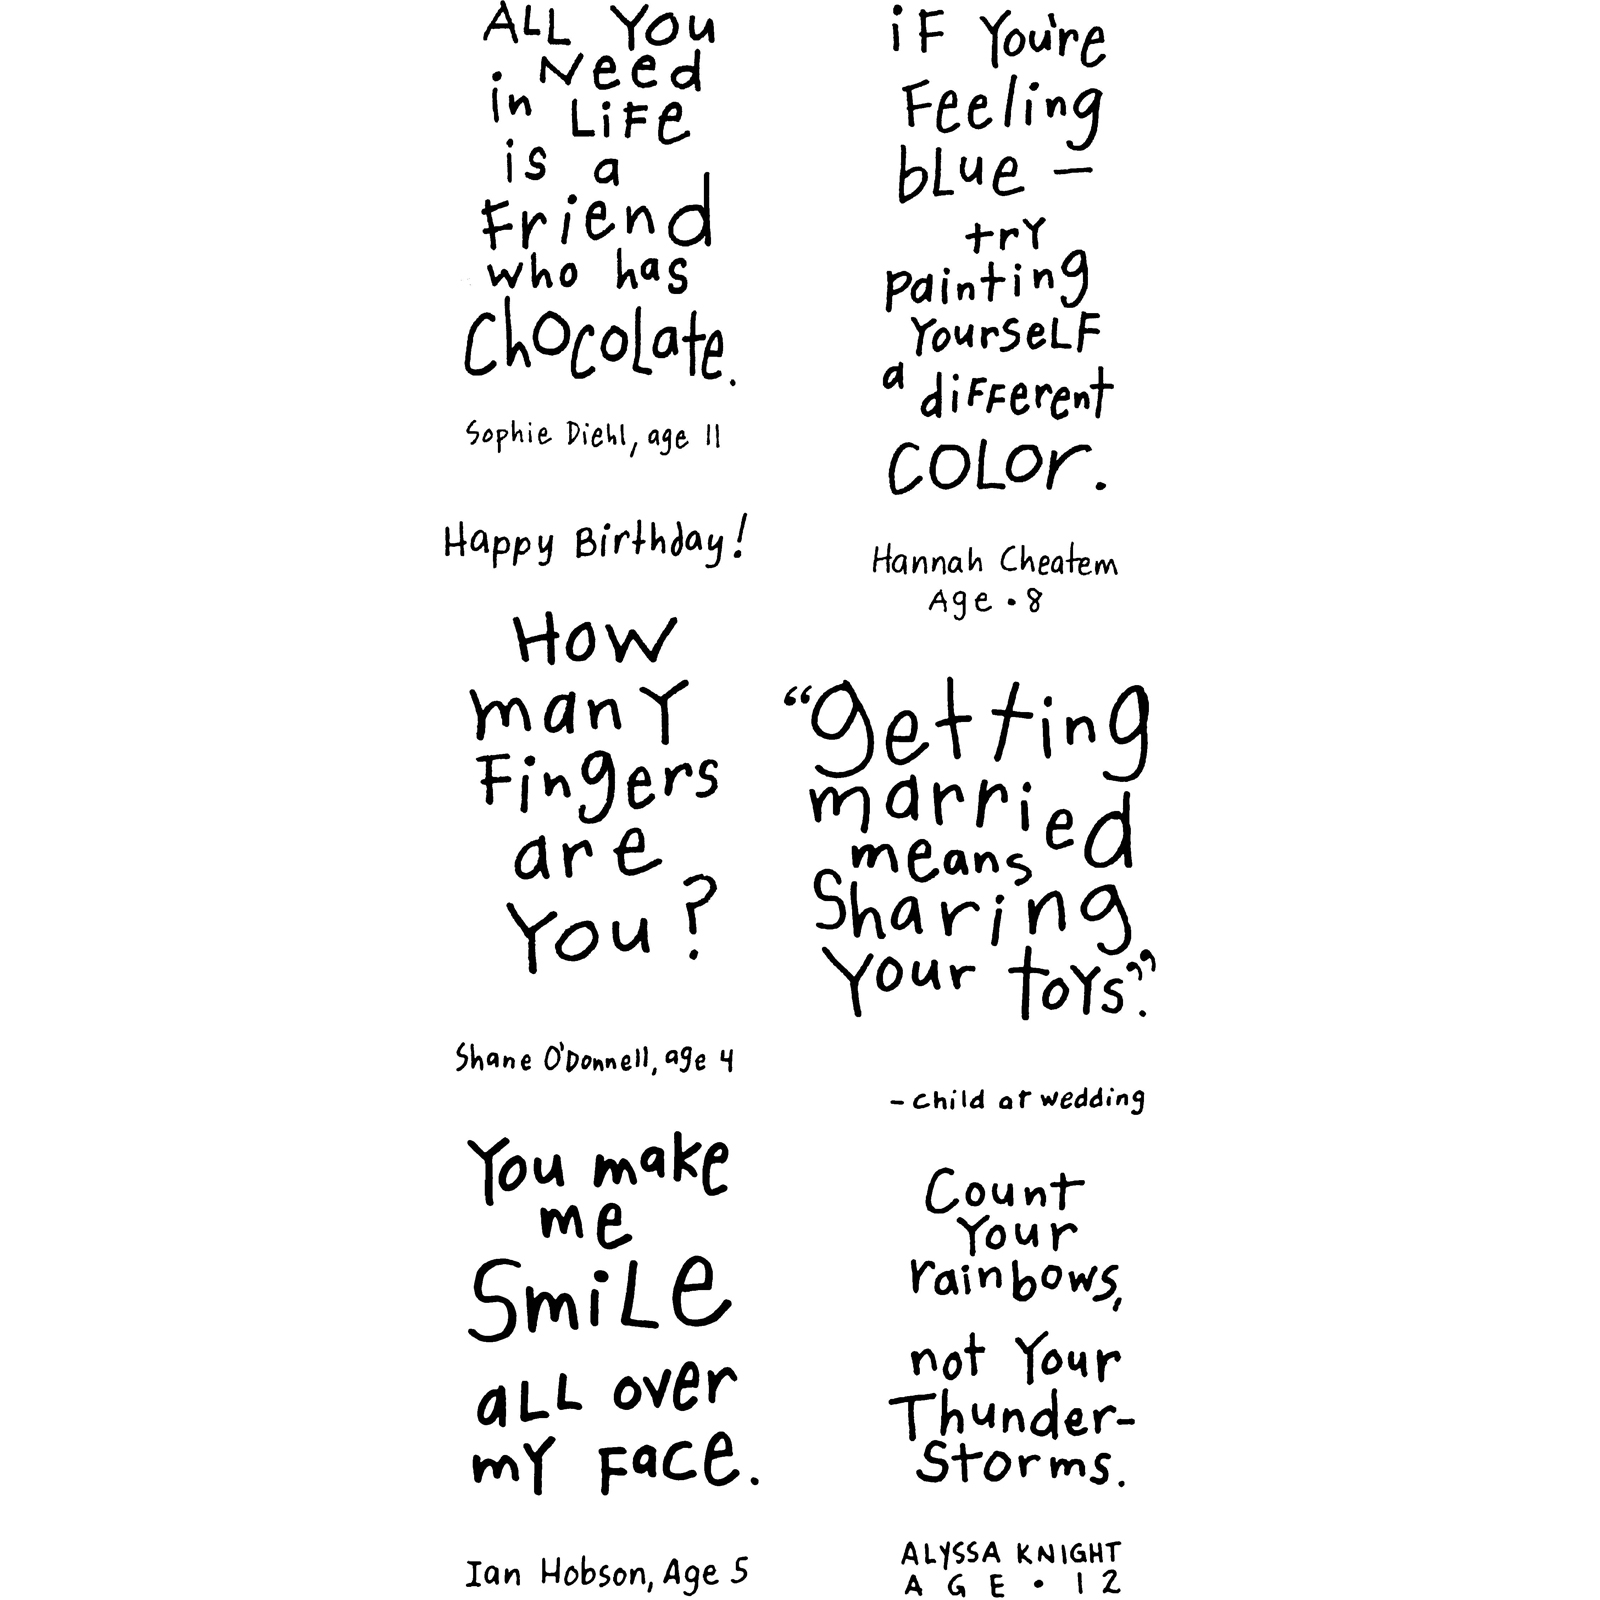 ALL You
Need
in LiFe
is a
Friend
who has
ChocoLate.
Sophie Diehl, age 11
Happy Birthday!
How
manY
Fingers
are
You?
Shane O'Donnell, age 4
You make
me
SmiLe
aLL over
mY Face.
Ian Hobson, Age 5
iF You're
Feeling
bLue —
trY
painting
YourseLF
a diFFerent
COLOr.
Hannah Cheatem
Age • 8
“getting
married
means
Sharing
Your toYs.”
- child at wedding
Count
Your
rainbows,
not Your
Thunder-
Storms.
ALYSSA KNIGHT
AGE • 12